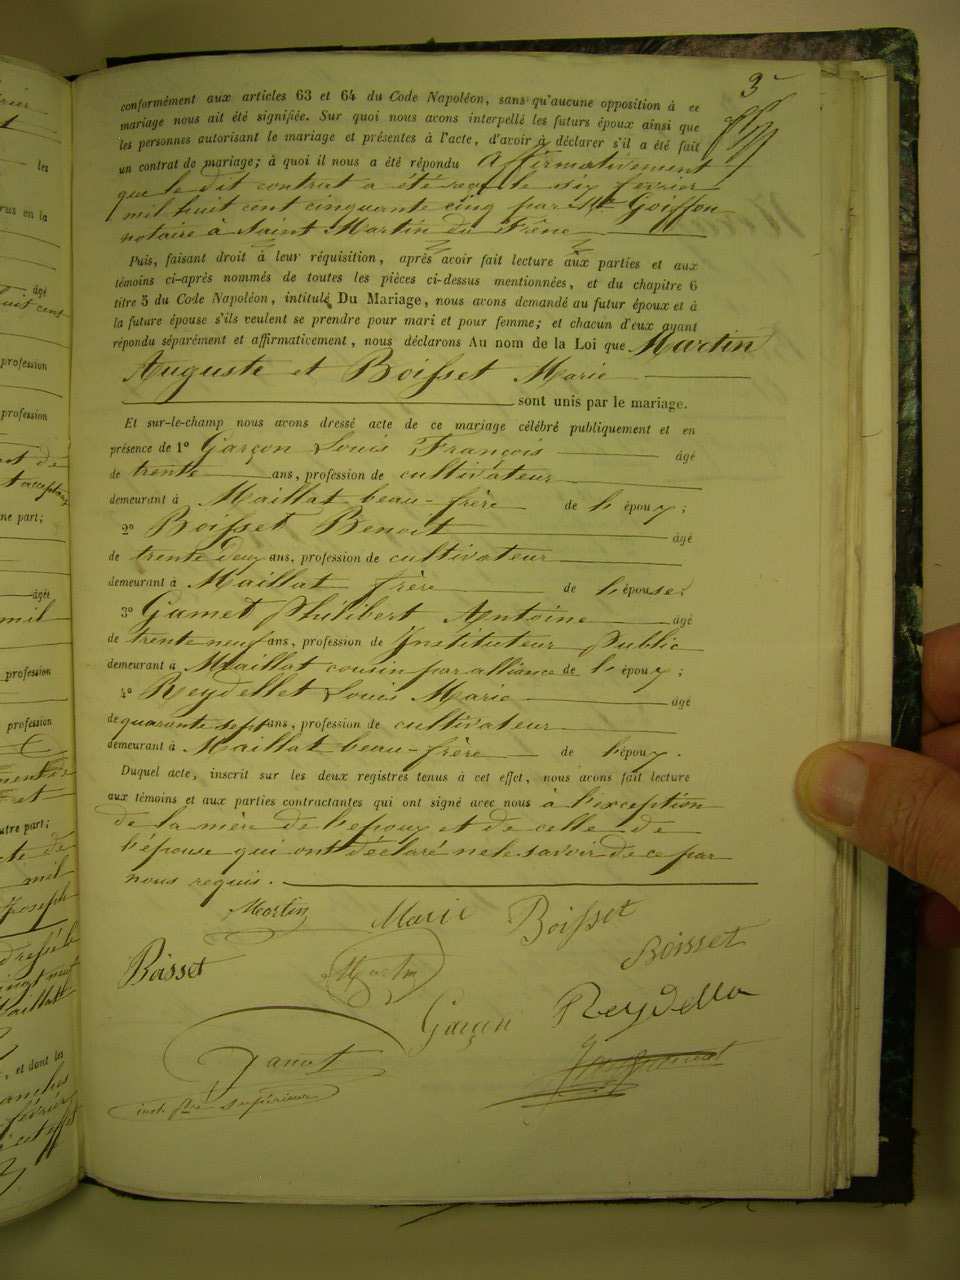 3
conformément aux articles 63 et 64 du Code Napoléon, sans qu'aucune opposition à ce
mariage nous ait été signifiée. Sur quoi nous avons interpellé les futurs époux ainsi que
les personnes autorisant le mariage et présentes à l'acte, d'avoir à déclarer s'il a été fait
un contrat de mariage; à quoi il nous a été répondu affirmativement
que le dit contrat a été reçu le six février
mil huit cent cinquante cinq par Me Goiffon
notaire à Saint Martin du Frêne
Puis, faisant droit à leur réquisition, après avoir fait lecture aux parties et aux
témoins ci-après nommés de toutes les pièces ci-dessus mentionnées, et du chapitre 6
titre 5 du Code Napoléon, intitulé Du Mariage, nous avons demandé au futur époux et à
la future épouse s'ils veulent se prendre pour mari et pour femme; et chacun d'eux ayant
répondu séparément et affirmativement, nous déclarons Au nom de la Loi que Martin
Auguste et Boisset Marie
sont unis par le mariage.
Et sur-le-champ nous avons dressé acte de ce mariage célébré publiquement et en
présence de 1º Garçon Louis François âgé
de trente ans, profession de cultivateur
demeurant à Maillat beau-frère de l'époux;
2º Boisset Benoit âgé
de trente deux ans, profession de cultivateur
demeurant à Maillat frère de l'épouse;
3º Gamet Philibert Antoine âgé
de trente neuf ans, profession de Instituteur Public
demeurant à Maillat cousin par alliance de l'époux;
4º Reydellet Louis Marie âgé
de quarante sept ans, profession de cultivateur
demeurant à Maillat beau-frère de l'époux.
Duquel acte, inscrit sur les deux registres tenus à cet effet, nous avons fait lecture
aux témoins et aux parties contractantes qui ont signé avec nous à l'exception
de la mère de l'époux et de celle de
l'épouse qui ont déclaré ne le savoir de ce par
nous requis.
Martin Marie Boisset
Boisset Martin Boisset
Garçon Reydellet
Gamet
inst. supérieur